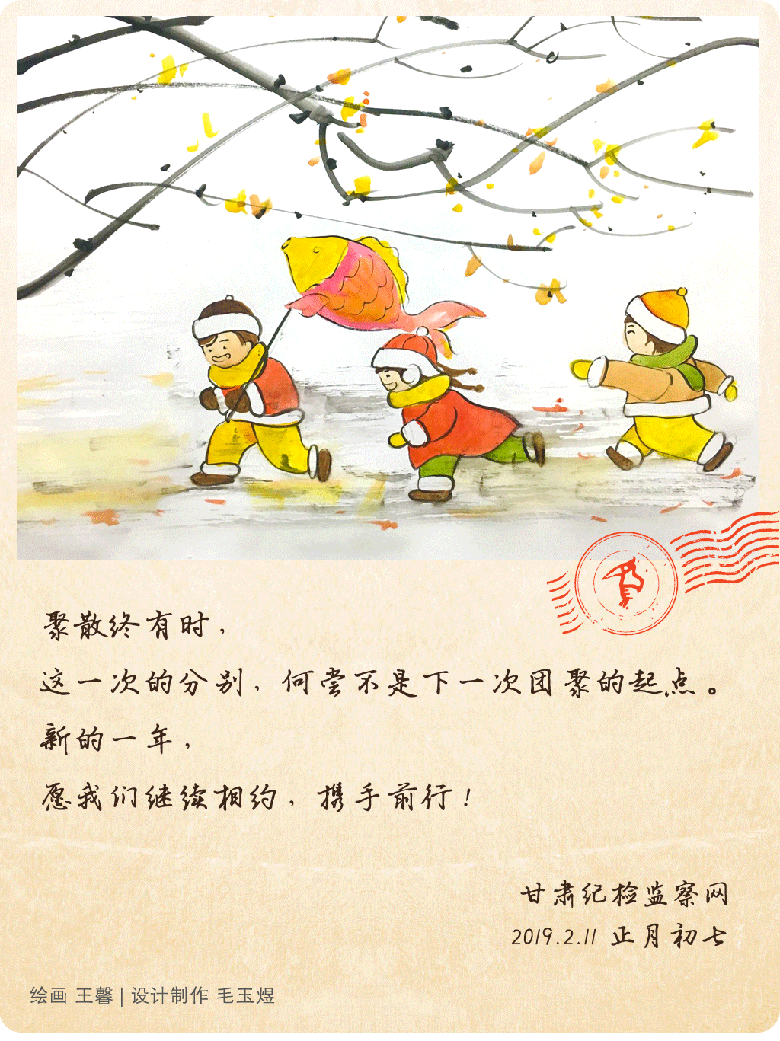 聚散终有时，
这一次的分别，何尝不是下一次团聚的起点。
新的一年，
愿我们继续相约，携手前行！
甘肃纪检监察网
2019.2.11 正月初七
绘画 王馨 | 设计制作 毛玉煜